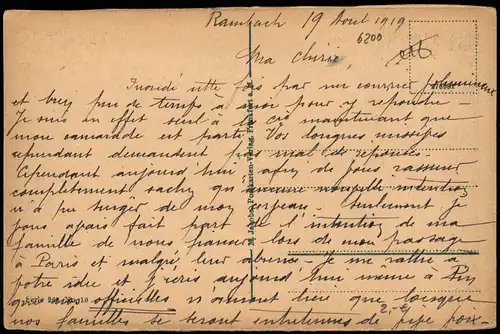 Rambach 19 Aout 1919
6200
Ma chérie,
Inondé cette fois par un courrier volumineux
et bien peu de temps à moi pour y repondre -
Je suis en effet seul à la Cie maintenant que
mon camarade est parti. Vos longues missives
cependant demandent pas mal de reponses.
Cependant aujourd'hui afin de vous rassurer
complètement sachez qu'aucune nouvelle intention
n'a pu surgir de mon cerveau. Seulement je
vous avais fait part de l'intention de ma
famille de nous fiancer lors de mon passage
à Paris et malgré leur absence - Je me rallie à
votre idée et j'écris aujourd'hui même à
que officielles n'auront lieu que lorsque
nos familles se seront entretenues de vive voix
M. Jacobs, Postkarten-Verlag, Frankfurt a. M.